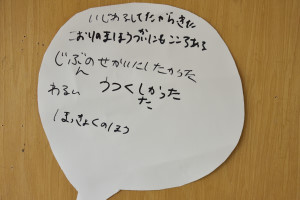 いじわるしてたからきた
こおりのまほうつかいにもこころある
じぶんのせかいにしたかった
わるい うつくしかった
ほっきょくのほう